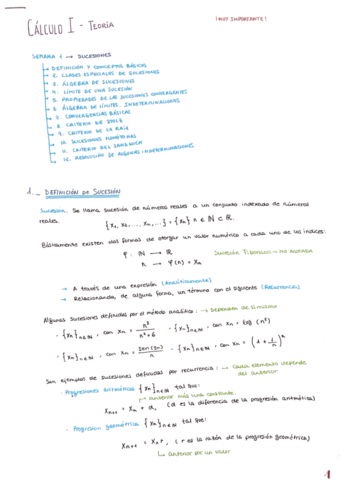 CÁLCULO I - TEORÍA
¡MUY IMPORTANTE!
SEMANA 1 → SUCESIONES
→ DEFINICIÓN Y CONCEPTOS BÁSICOS
→ 2. CLASES ESPECIALES DE SUCESIONES
→ 3. ÁLGEBRA DE SUCESIONES
→ 4. LÍMITE DE UNA SUCESIÓN
→ 5. PROPIEDADES DE LAS SUCESIONES CONVERGENTES
→ 6. ÁLGEBRA DE LÍMITES. INDETERMINACIONES
→ 7. CONVERGENCIAS BÁSICAS
→ 8. CRITERIO DE STOLZ
→ 9. CRITERIO DE LA RAÍZ
→ 10. SUCESIONES MONÓTONAS
→ 11. CRITERIO DEL SANDWICH
→ 12. RESOLUCIÓN DE ALGUNAS INDETERMINACIONES
1._ DEFINICIÓN DE SUCESIÓN
Sucesión. Se llama sucesión de números reales a un conjunto indexado de números
reales. {x₁, x₂, ..., xₙ, ...} = {xₙ} n ∈ ℕ ⊂ ℝ.
Básicamente existen dos formas de otorgar un valor numérico a cada uno de los índices:
φ : ℕ → ℝ
Sucesión Fibonacci → No acotada
n → φ(n) = xₙ
→ A través de una expresión (Analíticamente)
→ Relacionando, de alguna forma, un término con el siguiente (Recurrencia)
Algunas sucesiones definidas por el método analítico: → Dependen de sí mismo
· {xₙ}ₙ∈ℕ, con xₙ = n³/n²+6 · {xₙ}ₙ∈ℕ, con xₙ = log (n²)
· {xₙ}ₙ∈ℕ, con xₙ = sen(3n)/n · {xₙ}ₙ∈ℕ, con xₙ = (1 + 1/n)ⁿ
Son ejemplos de sucesiones definidas por recurrencia: → Cada elemento depende
del anterior
· Progresiones aritméticas {xₙ}ₙ∈ℕ tal que:
→ anterior más una constante.
xₙ₊₁ = xₙ + d, (d es la diferencia de la progresión aritmética)
· Progresión geométrica {xₙ}ₙ∈ℕ tal que:
xₙ₊₁ = xₙ r, (r es la razón de la progresión geométrica)
↳ anterior por un valor
1